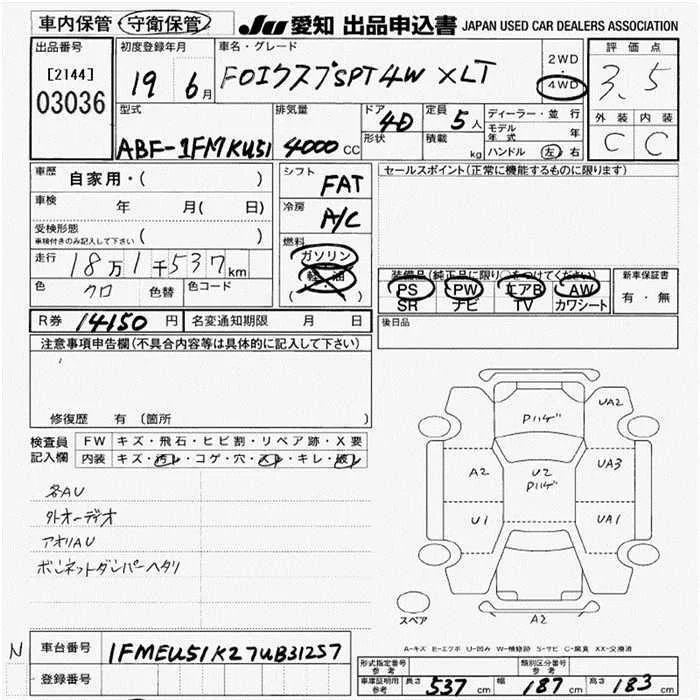 車内保管・守衛保管 JU 愛知 出品申込書 JAPAN USED CAR DEALERS ASSOCIATION
出品番号 初度登録年月 車名・グレード 評価点
[2144] 19 6月 FOエクスプSPT4W XLT 2WD・4WD 3.5
03036
型式 排気量 ドア 定員 ディーラー・並行 外装 内装
ABF-1FMKU51 4000CC 4D 5人 モデル年式 年 C C
形状 積載 kg ハンドル 左 右
車歴 自家用・( ) シフト FAT セールスポイント(正常に機能するものに限ります)
車検 年 月( 日) 冷房 A/C
受検形態
車検付きのみ記入して下さい ( ) 燃料 ガソリン
走行 18万1千537km 軽・油
( )
装備品(純正品に限り○をつけてください) 新車保証書
色 クロ 色替 色コード PS PW エアB AW 有・無
SR ナビ TV カワシート
R券 14150円 名変通知期限 月 日 後日品
注意事項申告欄(不具合内容等は具体的に記入して下さい)
修復歴 有(箇所 )
検査員記入欄 FW キズ・飛石・ヒビ割・リペア跡・X要
内装 キズ・汚レ・コゲ・穴・スレ・キレ・破レ
各AU
外オーディオ
アオリAU
ボンネットダンパーヘタリ
Pハゲ UA2
A2 U2 Pハゲ UA3
U1 UA1
スペア A2
A-キズ E-エクボ U-凹み W-補修跡 S-サビ C-腐食 XX-交換済
N 車台番号 1FMEU51K27UB31257
登録番号
形式指定番号 参考 類別区分番号 参考
車庫証明用 参考 長さ 537cm 幅 187cm 高さ 183cm